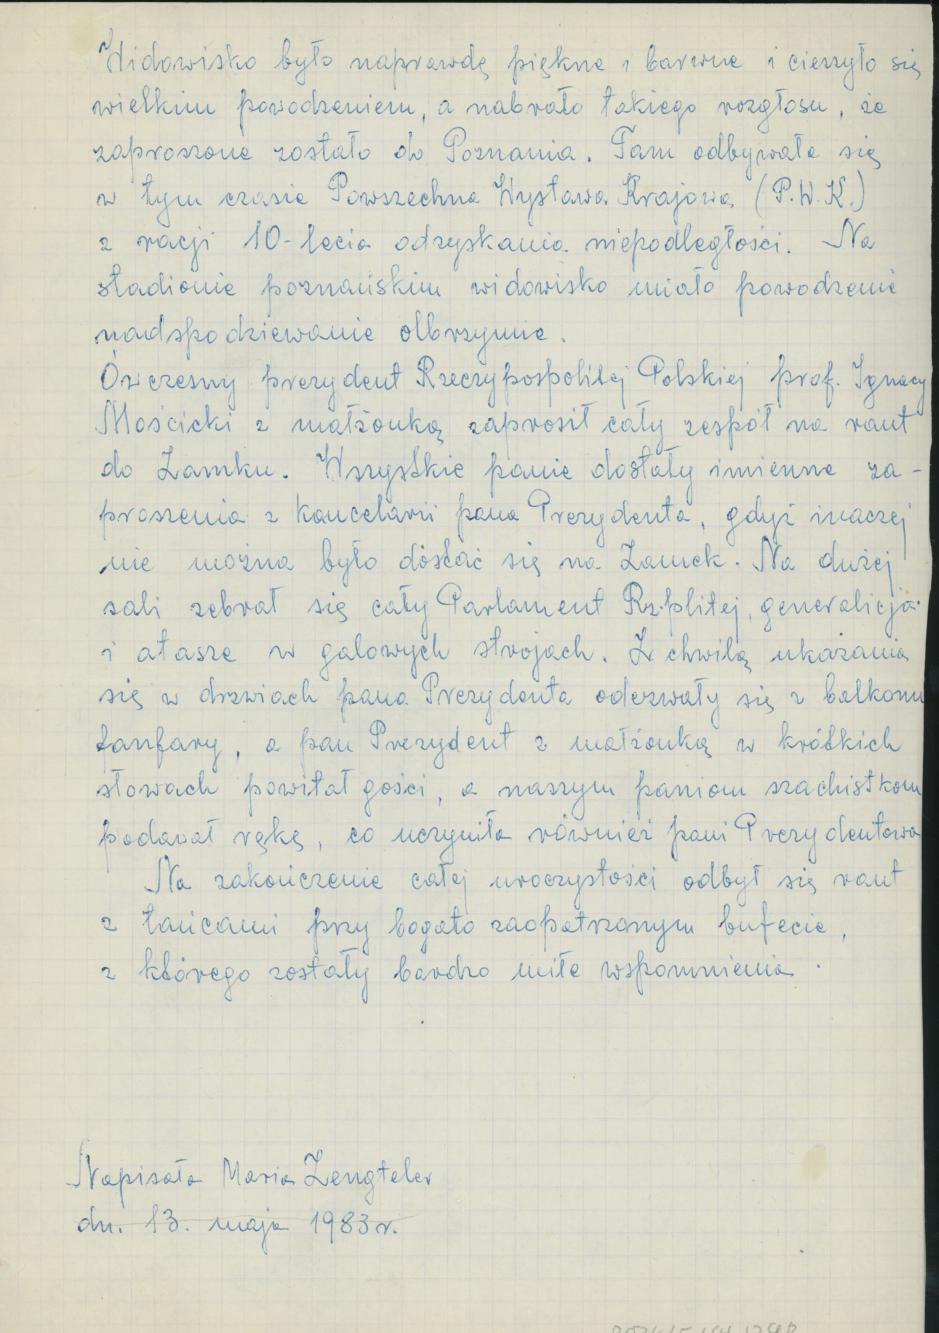 Widowisko było naprawdę piękne i barwne i cieszyło się
wielkim powodzeniem, a nabrało takiego rozgłosu, że
zaproszone zostało do Poznania. Tam odbywała się
w tym czasie Powszechna Wystawa Krajowa (P.W.K.)
z racji 10-lecia odzyskania niepodległości. Na
stadionie poznańskim widowisko miało powodzenie
nadspodziewanie olbrzymie.
Ówczesny prezydent Rzeczypospolitej Polskiej prof. Ignacy
Mościcki z małżonką zaprosił cały zespół na raut
do Zamku. Wszystkie panie dostały imienne za-
proszenia z kancelarii pana Prezydenta, gdyż inaczej
nie można było dostać się na Zamek. Na dużej
sali zebrał się cały Parlament Rz.plitej, generalicja
i atasze w galowych strojach. Z chwilą ukazania
się w drzwiach pana Prezydenta odezwały się z balkonu
fanfary, a pan Prezydent z małżonką w krótkich
słowach powitał gości, a naszym paniom szachistkom
podawał rękę, co uczyniła również pani Prezydentowa
Na zakończenie całej uroczystości odbył się raut
z tańcami przy bogato zaopatrzonym bufecie,
z którego zostały bardzo miłe wspomnienia.
Napisała Maria Zengteler
dn. 13. maja 1983 r.